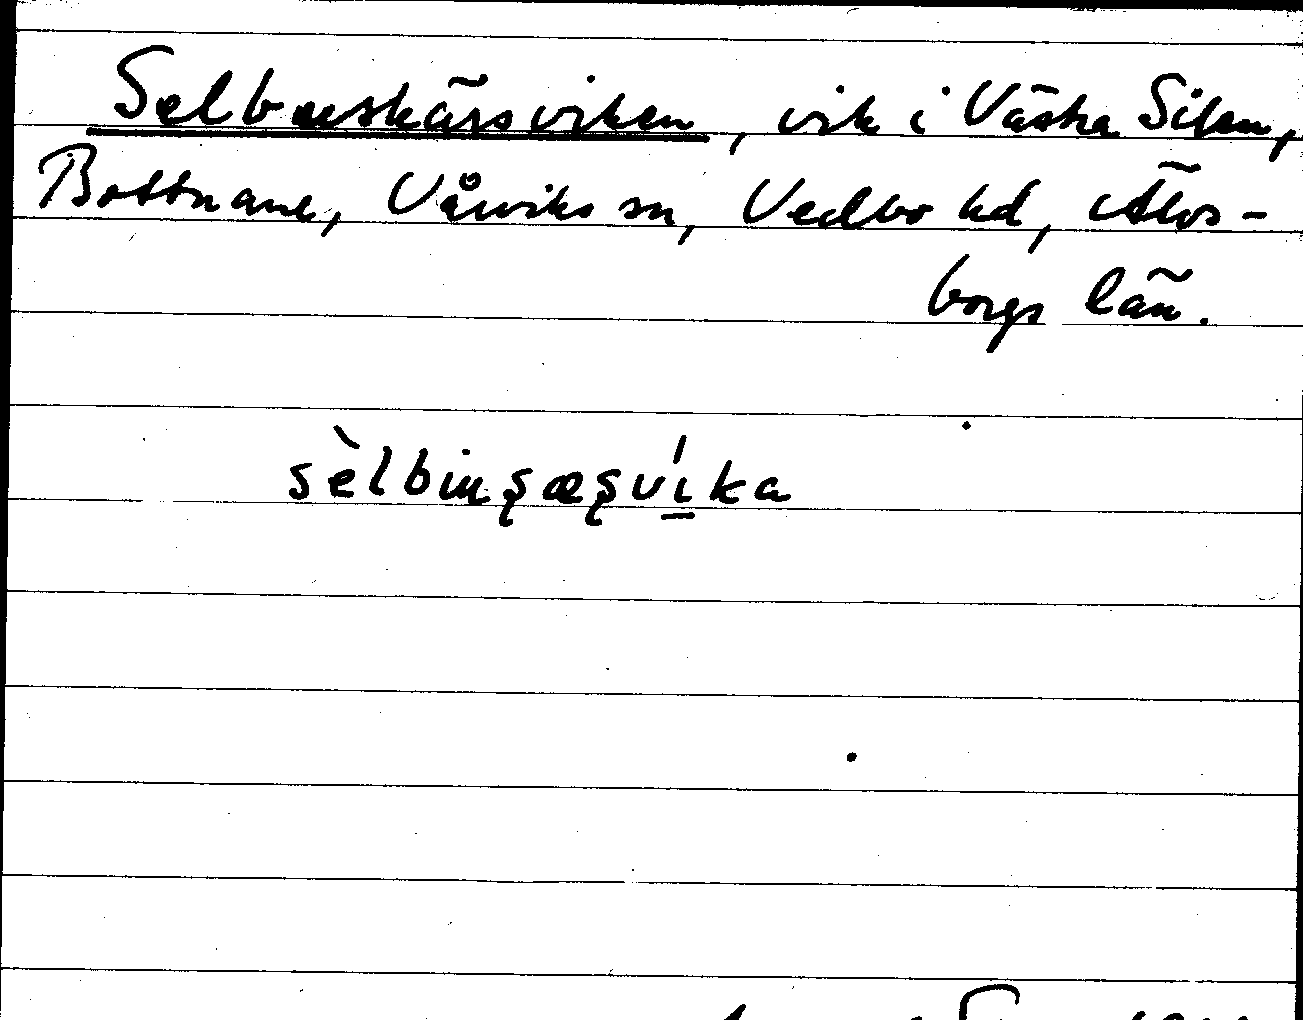 Selbneskärsviken, vik i Västra Silen,
Bottnane, Vårviks sn, Vedbo hd, Älvs-
borgs län.
sèlbinşæşví̱ka